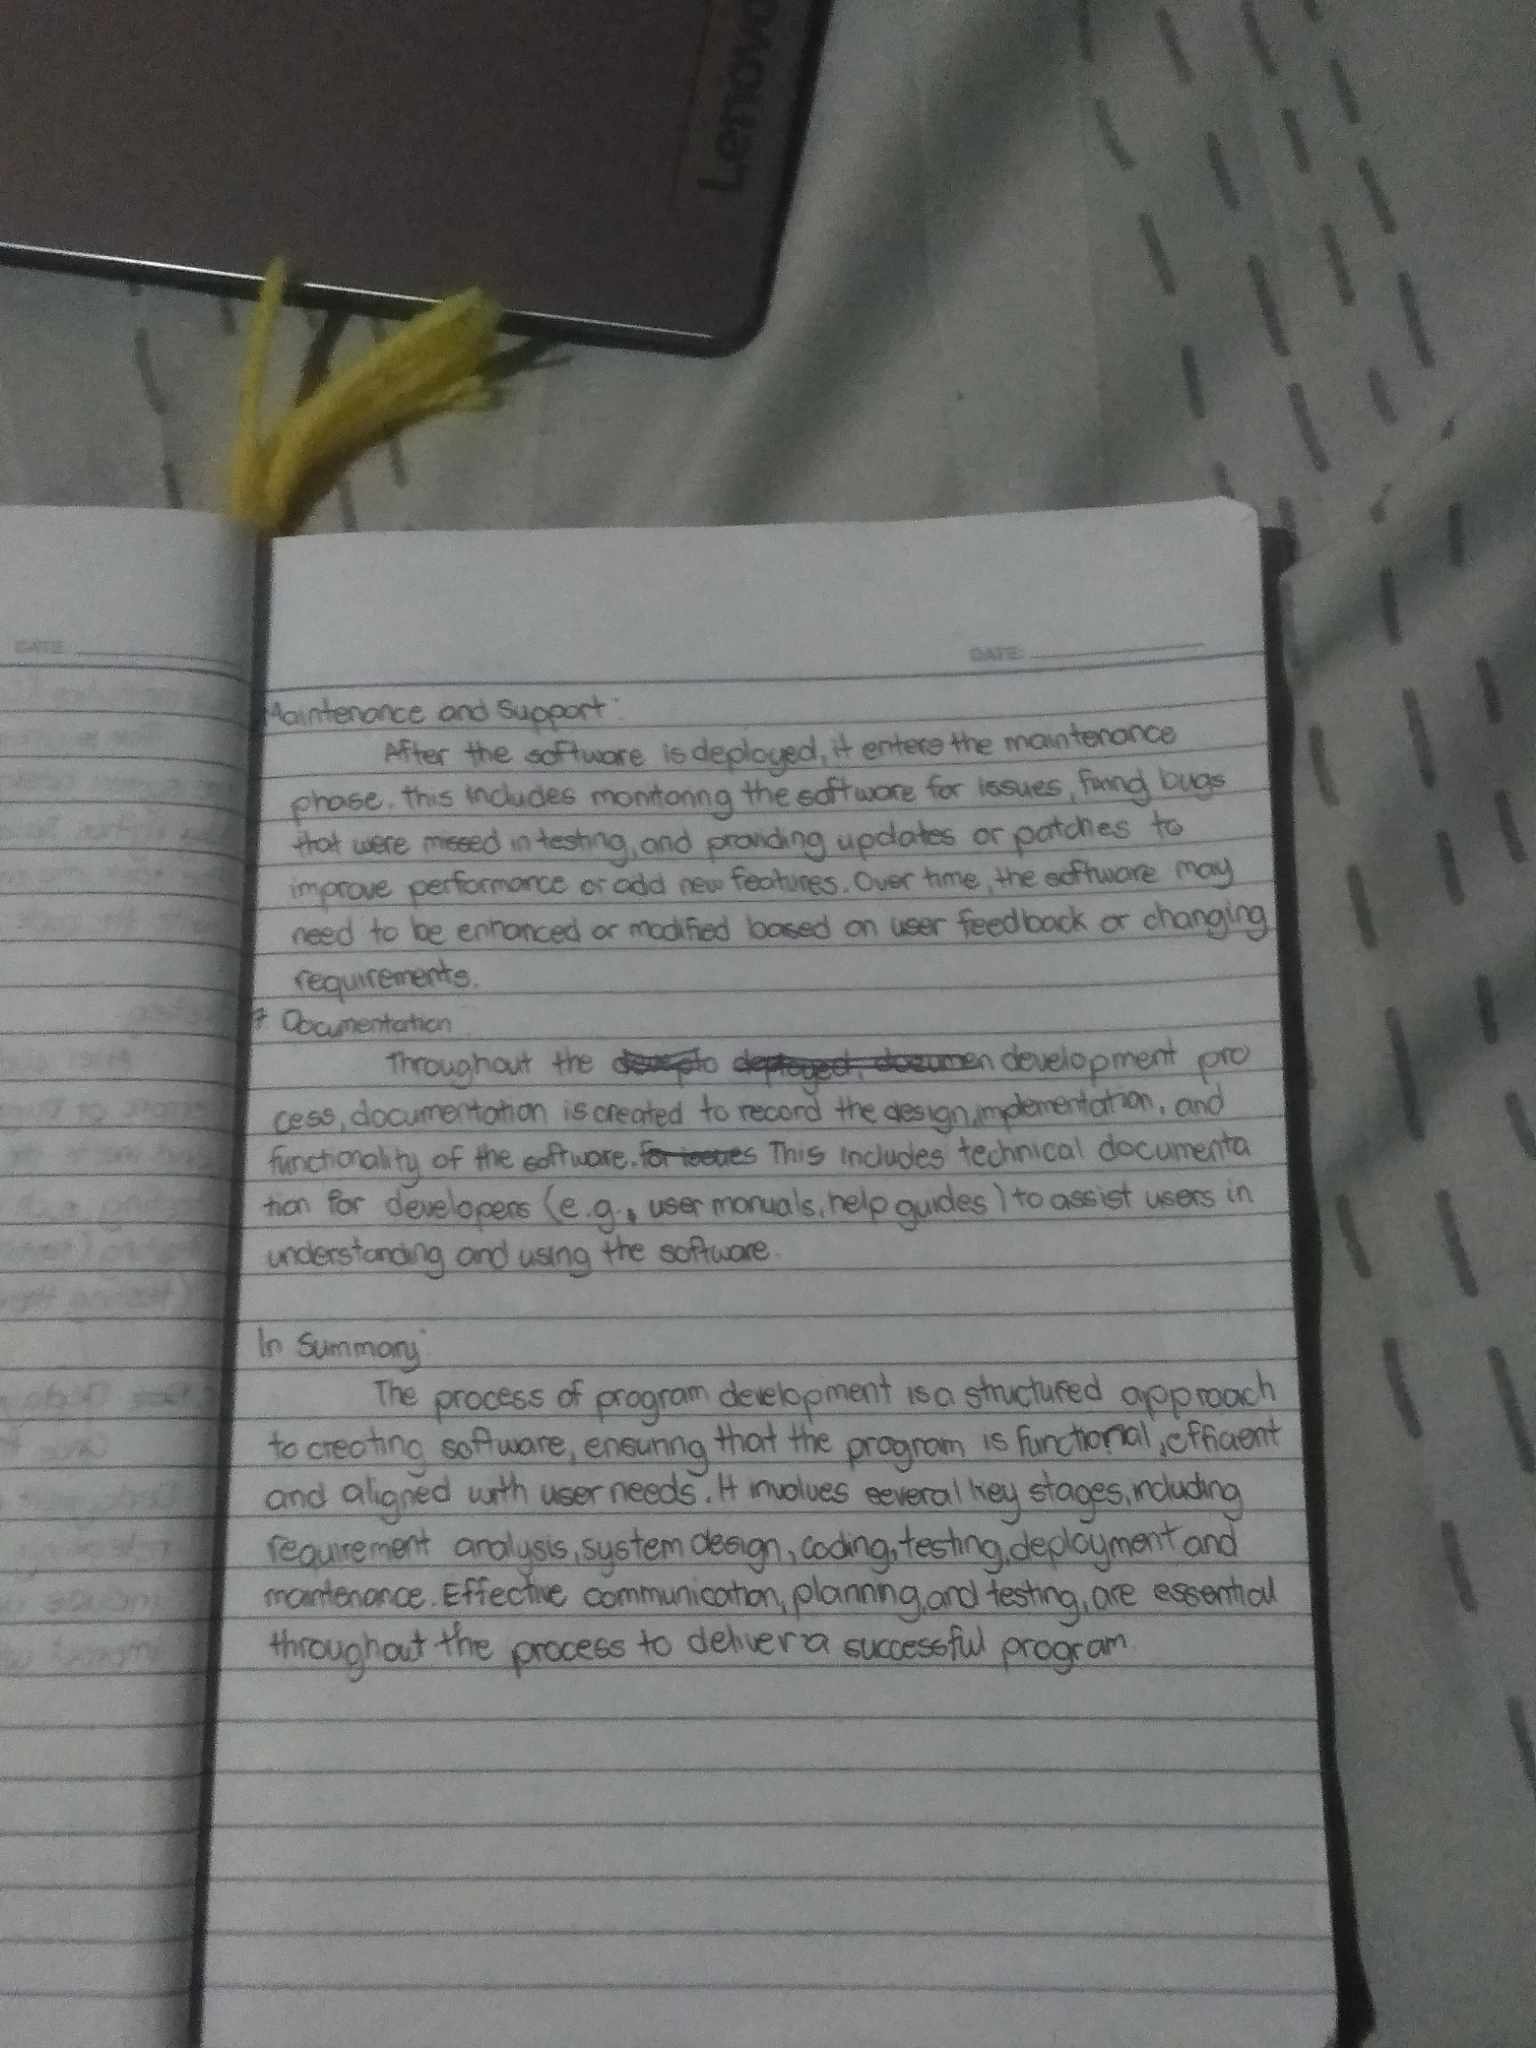 Lenovo
DATE:
DATE:
Maintenance and Support:
After the software is deployed, it enters the maintenance
phase. this includes monitoring the software for issues, fixing bugs
that were missed in testing, and providing updates or patches to
improve performance or add new features. Over time, the software may
need to be enhanced or modified based on user feedback or changing
requirements.
7 Documentation
Throughout the development pro
cess, documentation is created to record the design, implementation, and
functionality of the software. for issues This includes technical documenta
tion for developers (e.g., user manuals, help guides) to assist users in
understanding and using the software.
In Summary:
The process of program development is a structured approach
to creating software, ensuring that the program is functional, efficient
and aligned with user needs. It involves several key stages, including
requirement analysis, system design, coding, testing, deployment and
maintenance. Effective communication, planning, and testing, are essential
throughout the process to deliver a successful program